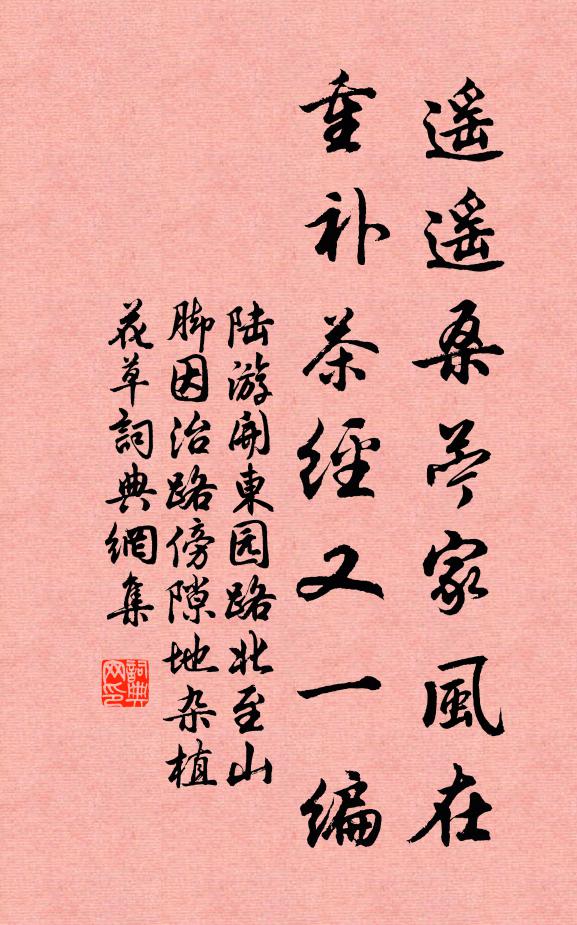 遙遙桑苎家風在
重补茶經又一編
陆游開東园路北至山
脚因治路傍隙地杂植
花草詞典網集
詞典
网印